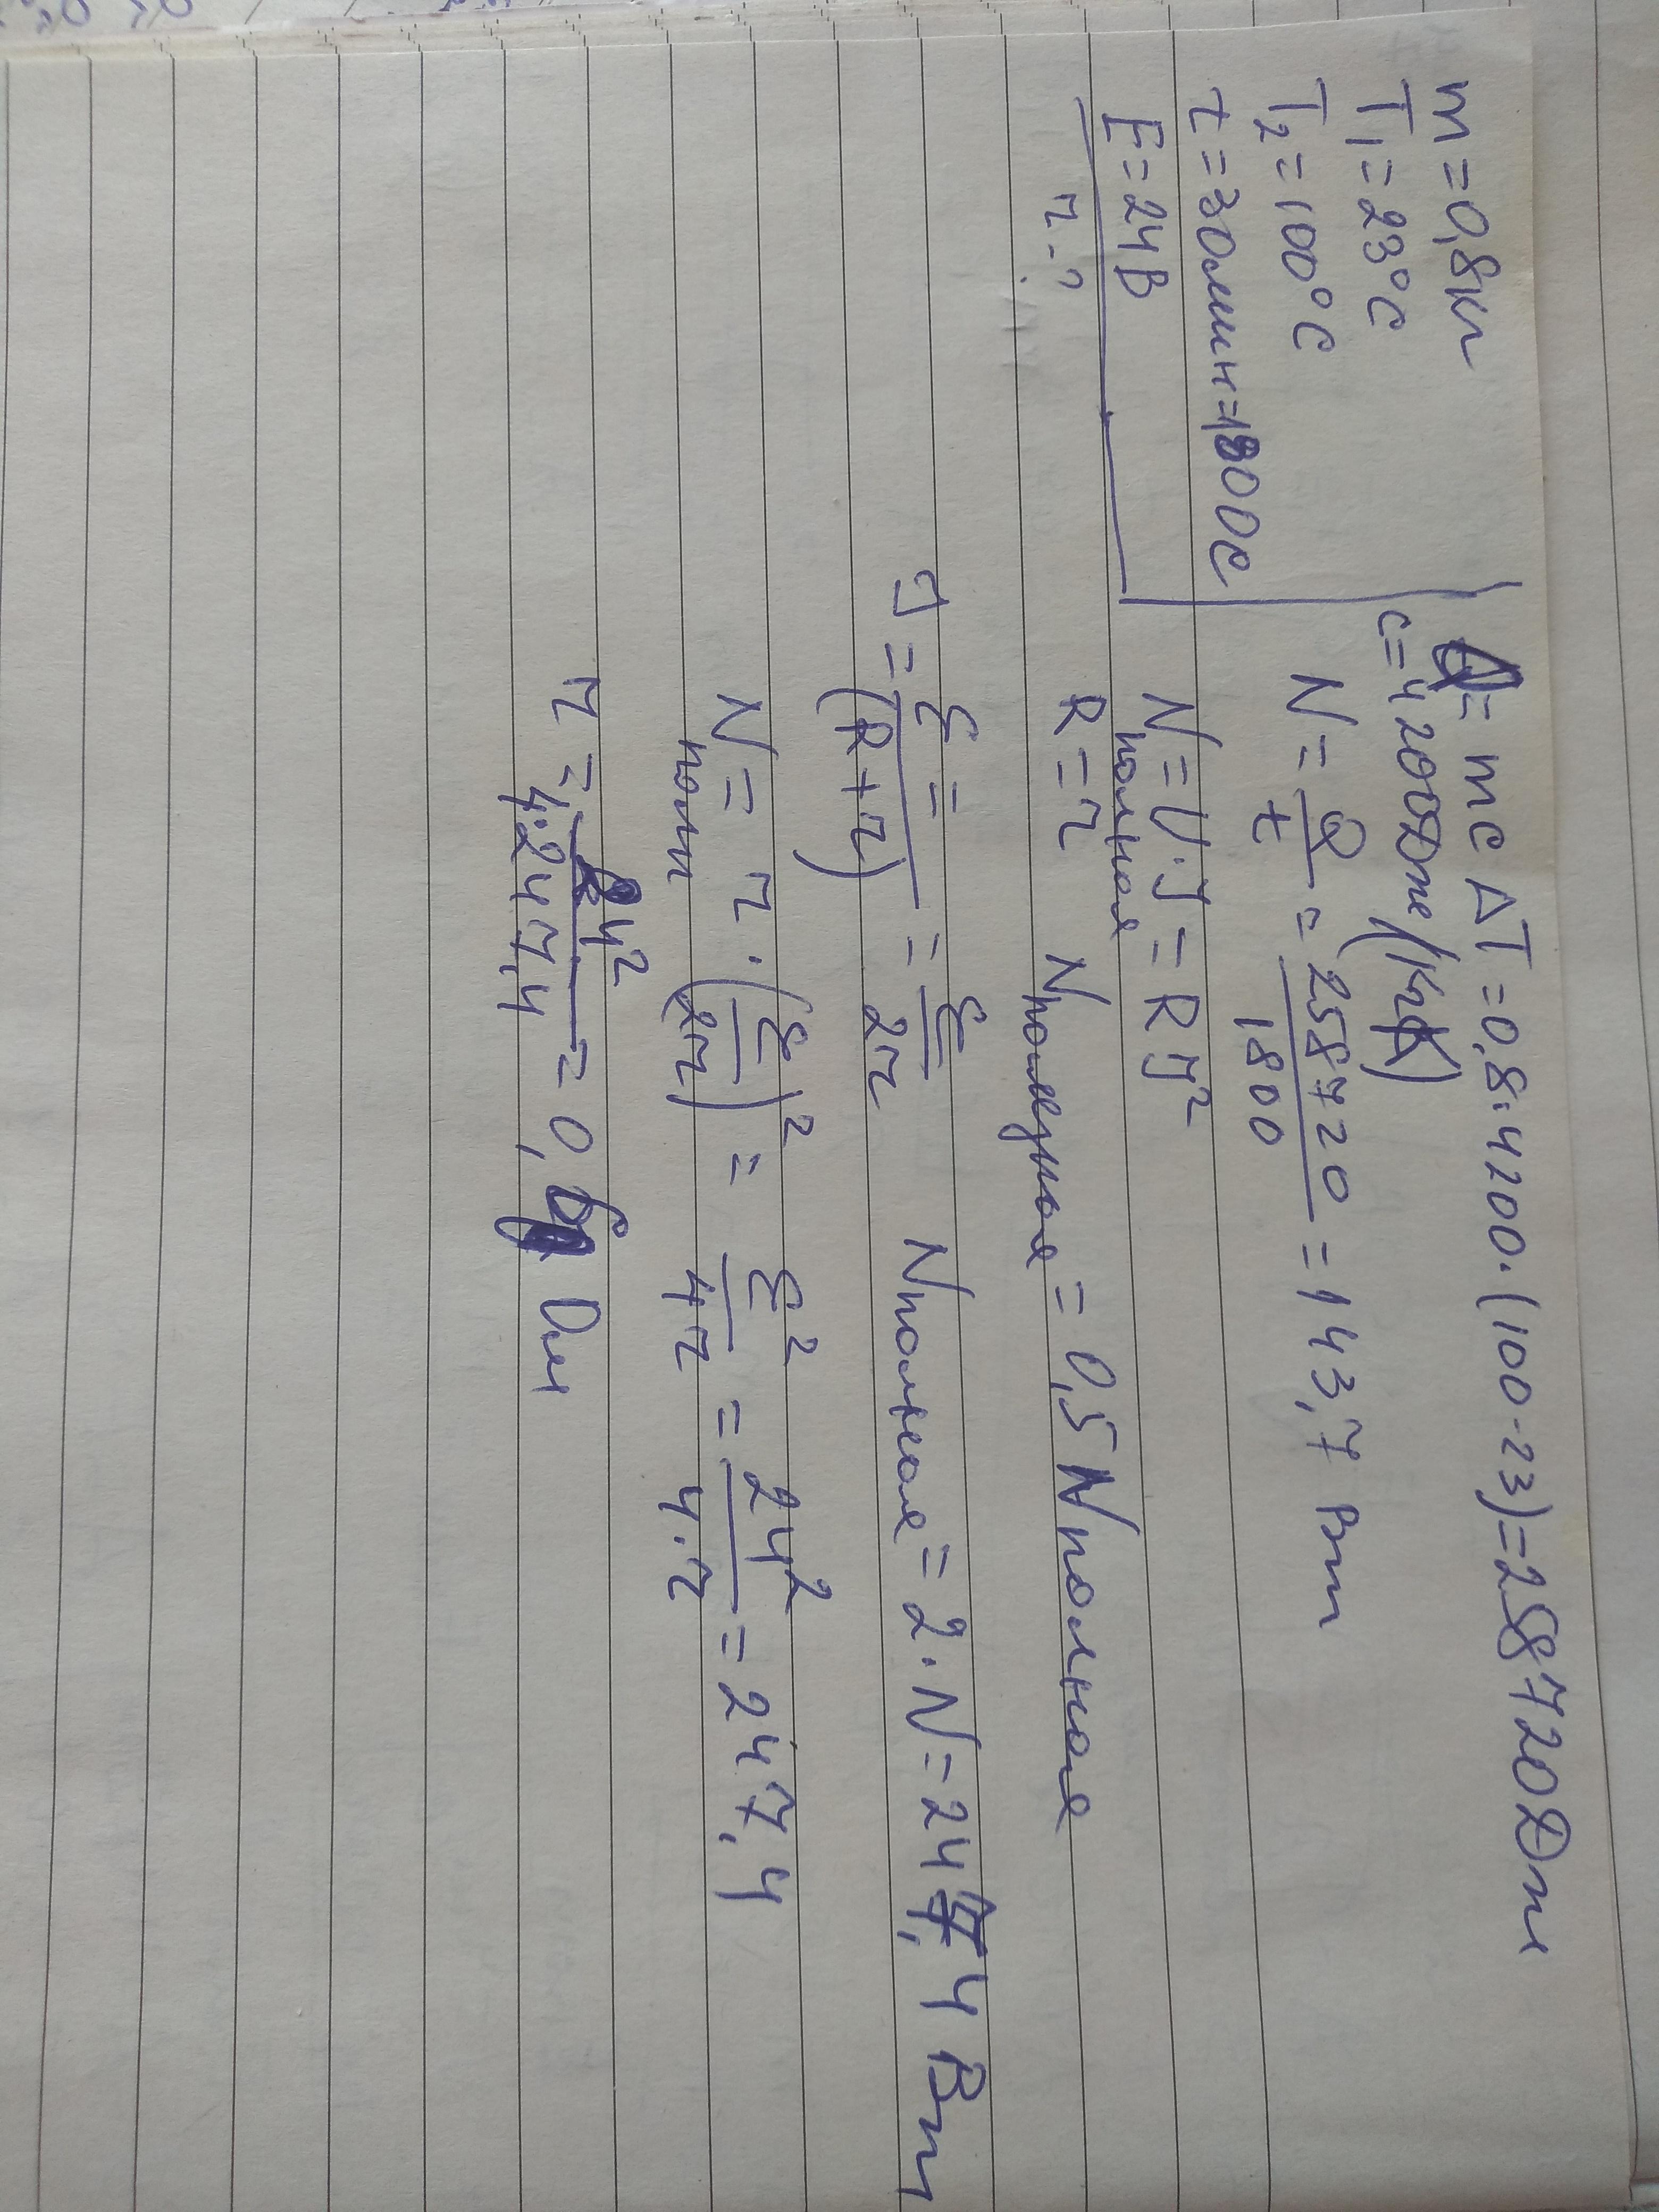 m=0,8кг
T₁=23°C
T₂=100°C
t=30мин=1800с
E=24В
r-?
Q=mcΔT=0,8·4200·(100-23)=258720Дж
c=4200Дж/(кгК)
N=Q/t=258720/1800=143,7 Вт
Nполная=U·J=RJ²
R=r Nполезная=0,5Nполная
J=ξ/(R+r)=ξ/2r Nполная=2·N=247,4 Вт
Nполн=r·(ξ/2r)²=ξ²/4r=24²/4·r=247,4
r=24²/4·247,4=0,6 Ом